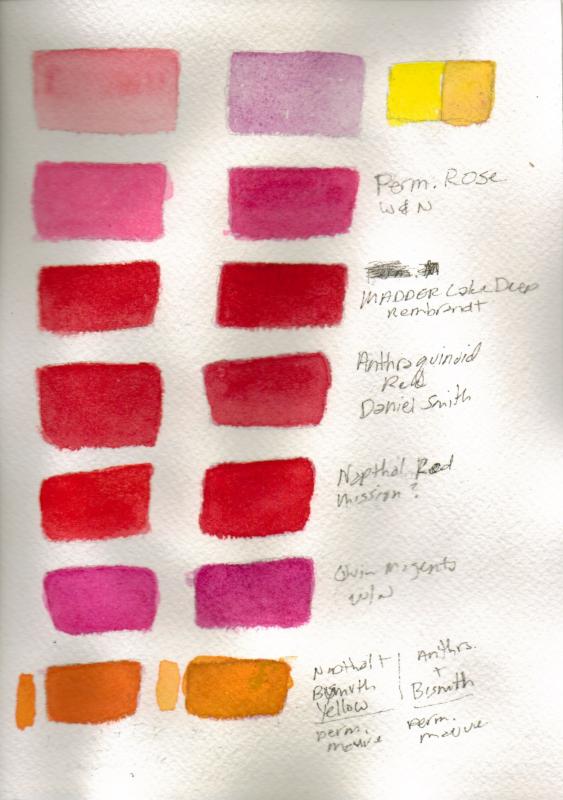 Perm. Rose
W & N
MADDER Lake Deep
Rembrandt
Anthraquinoid
Red
Daniel Smith
Napthol Red
mission?
Quin Magenta
W/N
Napthol +
Bismuth
Yellow
perm.
mauve
Anthra.
+
Bismuth
perm.
mauve